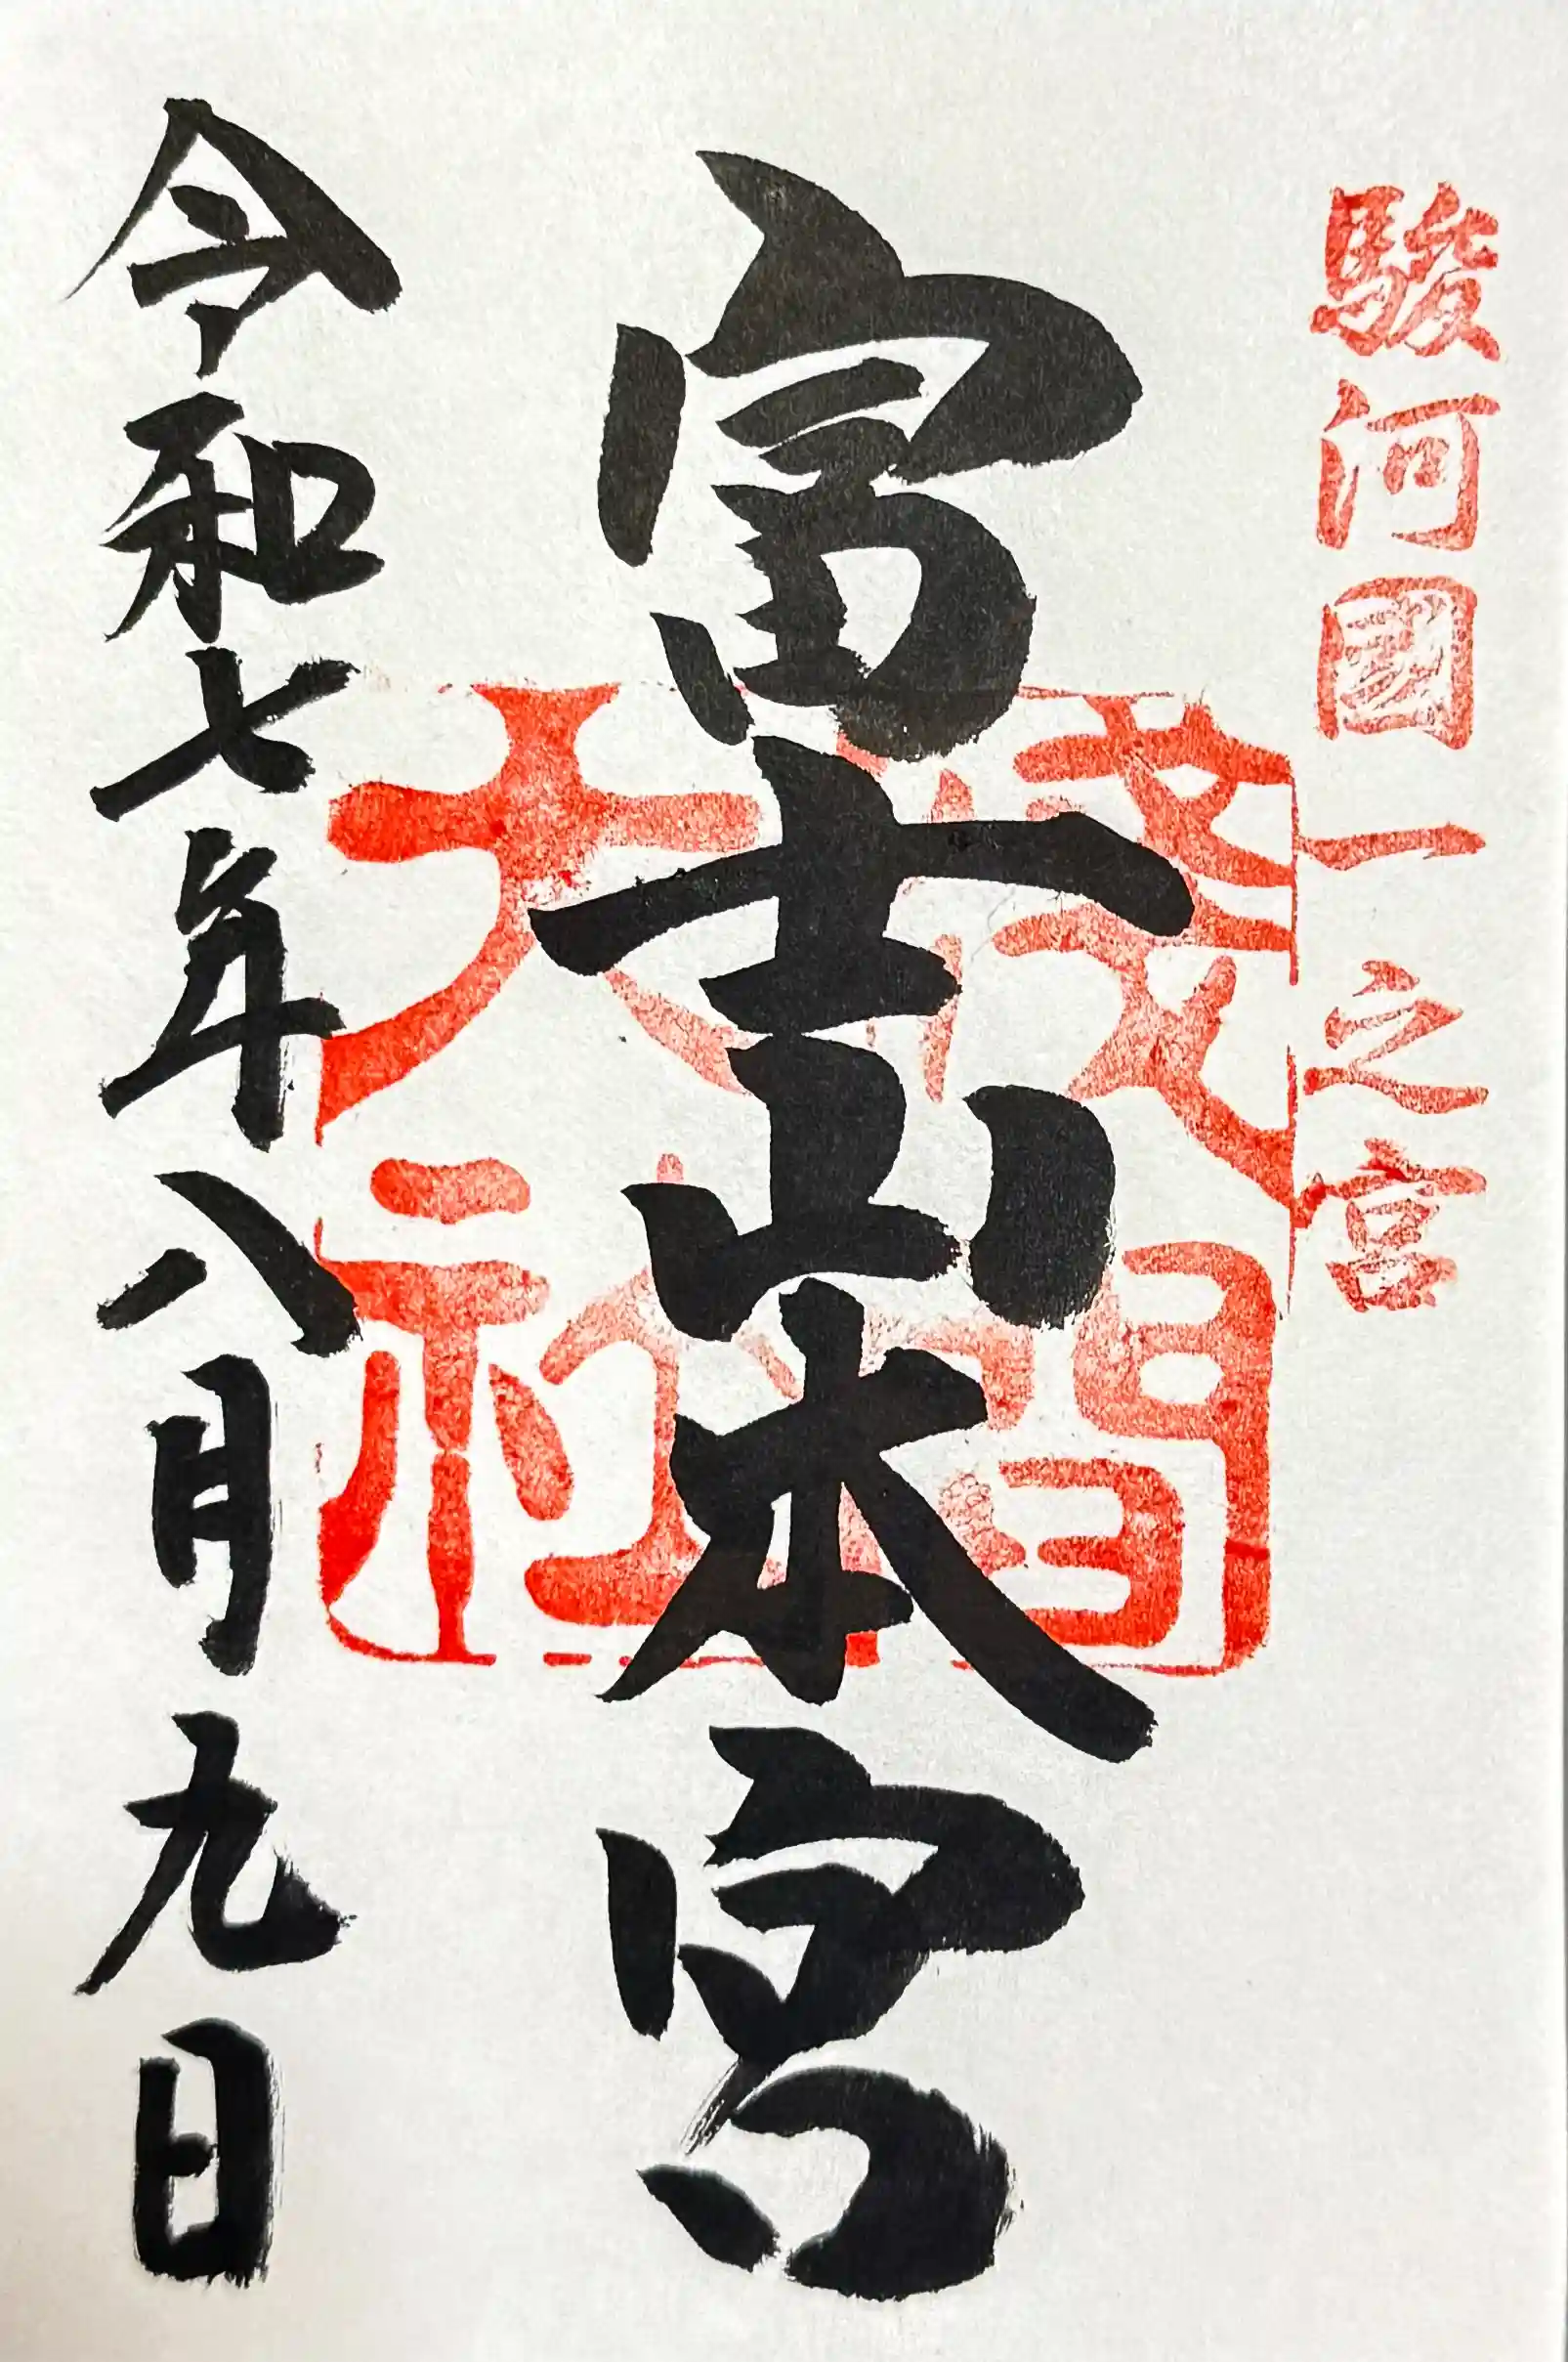 駿河國一之宮
富士山本宮
淺間大社
令和七年八月九日